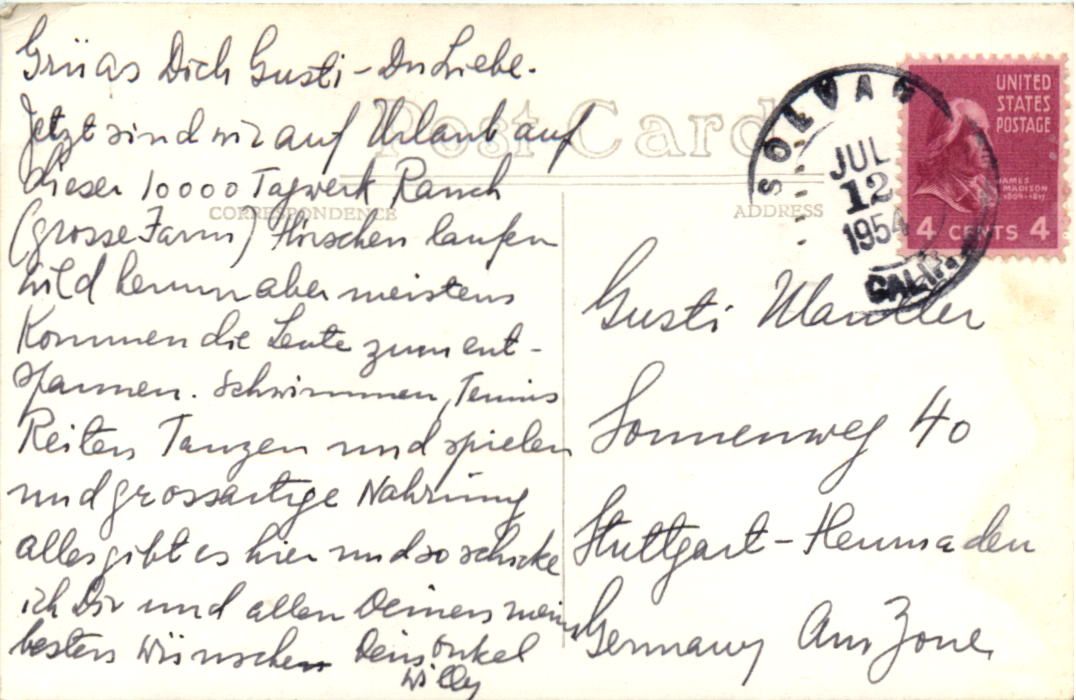 Grüas Dich Gusti - Du Liebe.
Jetzt sind wir auf Urlaub auf
dieser 10000 Tagwerk Ranch
(grosse Farm) Hirschen laufen
wild herum aber meistens
Kommen die Leute zum ent-
spannen. Schwimmen, Tennis
Reiten Tanzen und spielen
und grossartige Nahrung
alles gibt es hier und so schicke
ich Dir und allen Deinen meine
besten Wünschen Dein Onkel
Willy
Post Card
CORRESPONDENCE
ADDRESS
SOLVANG
JUL
12
1954
CALIF.
UNITED
STATES
POSTAGE
JAMES
MADISON
1809-1817
4 CENTS 4
Gusti
Sonnenweg 40
Stuttgart-Heumaden
Germany Am Zone